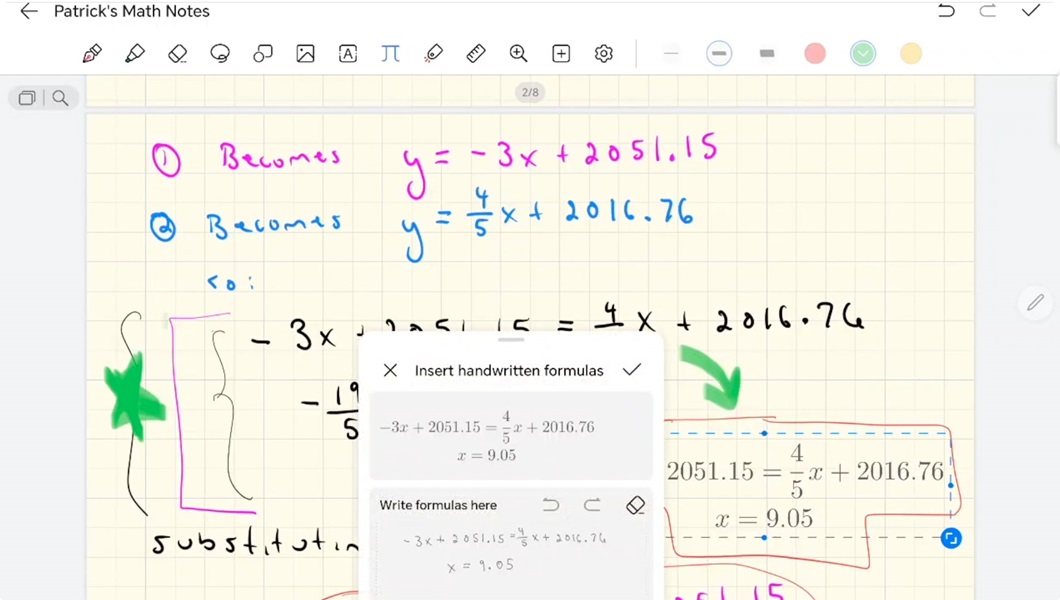 Patrick's Math Notes
2/8
① Becomes y = -3x + 2051.15
② Becomes y = 4/5 x + 2016.76
<o:
- 3x + 2051.15 = 4/5 x + 2016.76
Insert handwritten formulas
−3x + 2051.15 = 4/5 x + 2016.76
x = 9.05
Write formulas here
-3x + 2051.15 = 4/5 x + 2016.76
x = 9.05
- 19/5
2051.15 = 4/5 x + 2016.76
x = 9.05
substitutin
51.15